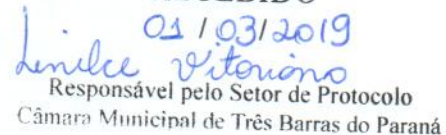 01/03/2019
Lenilce Vitoriano
Responsável pelo Setor de Protocolo
Câmara Municipal de Três Barras do Paraná